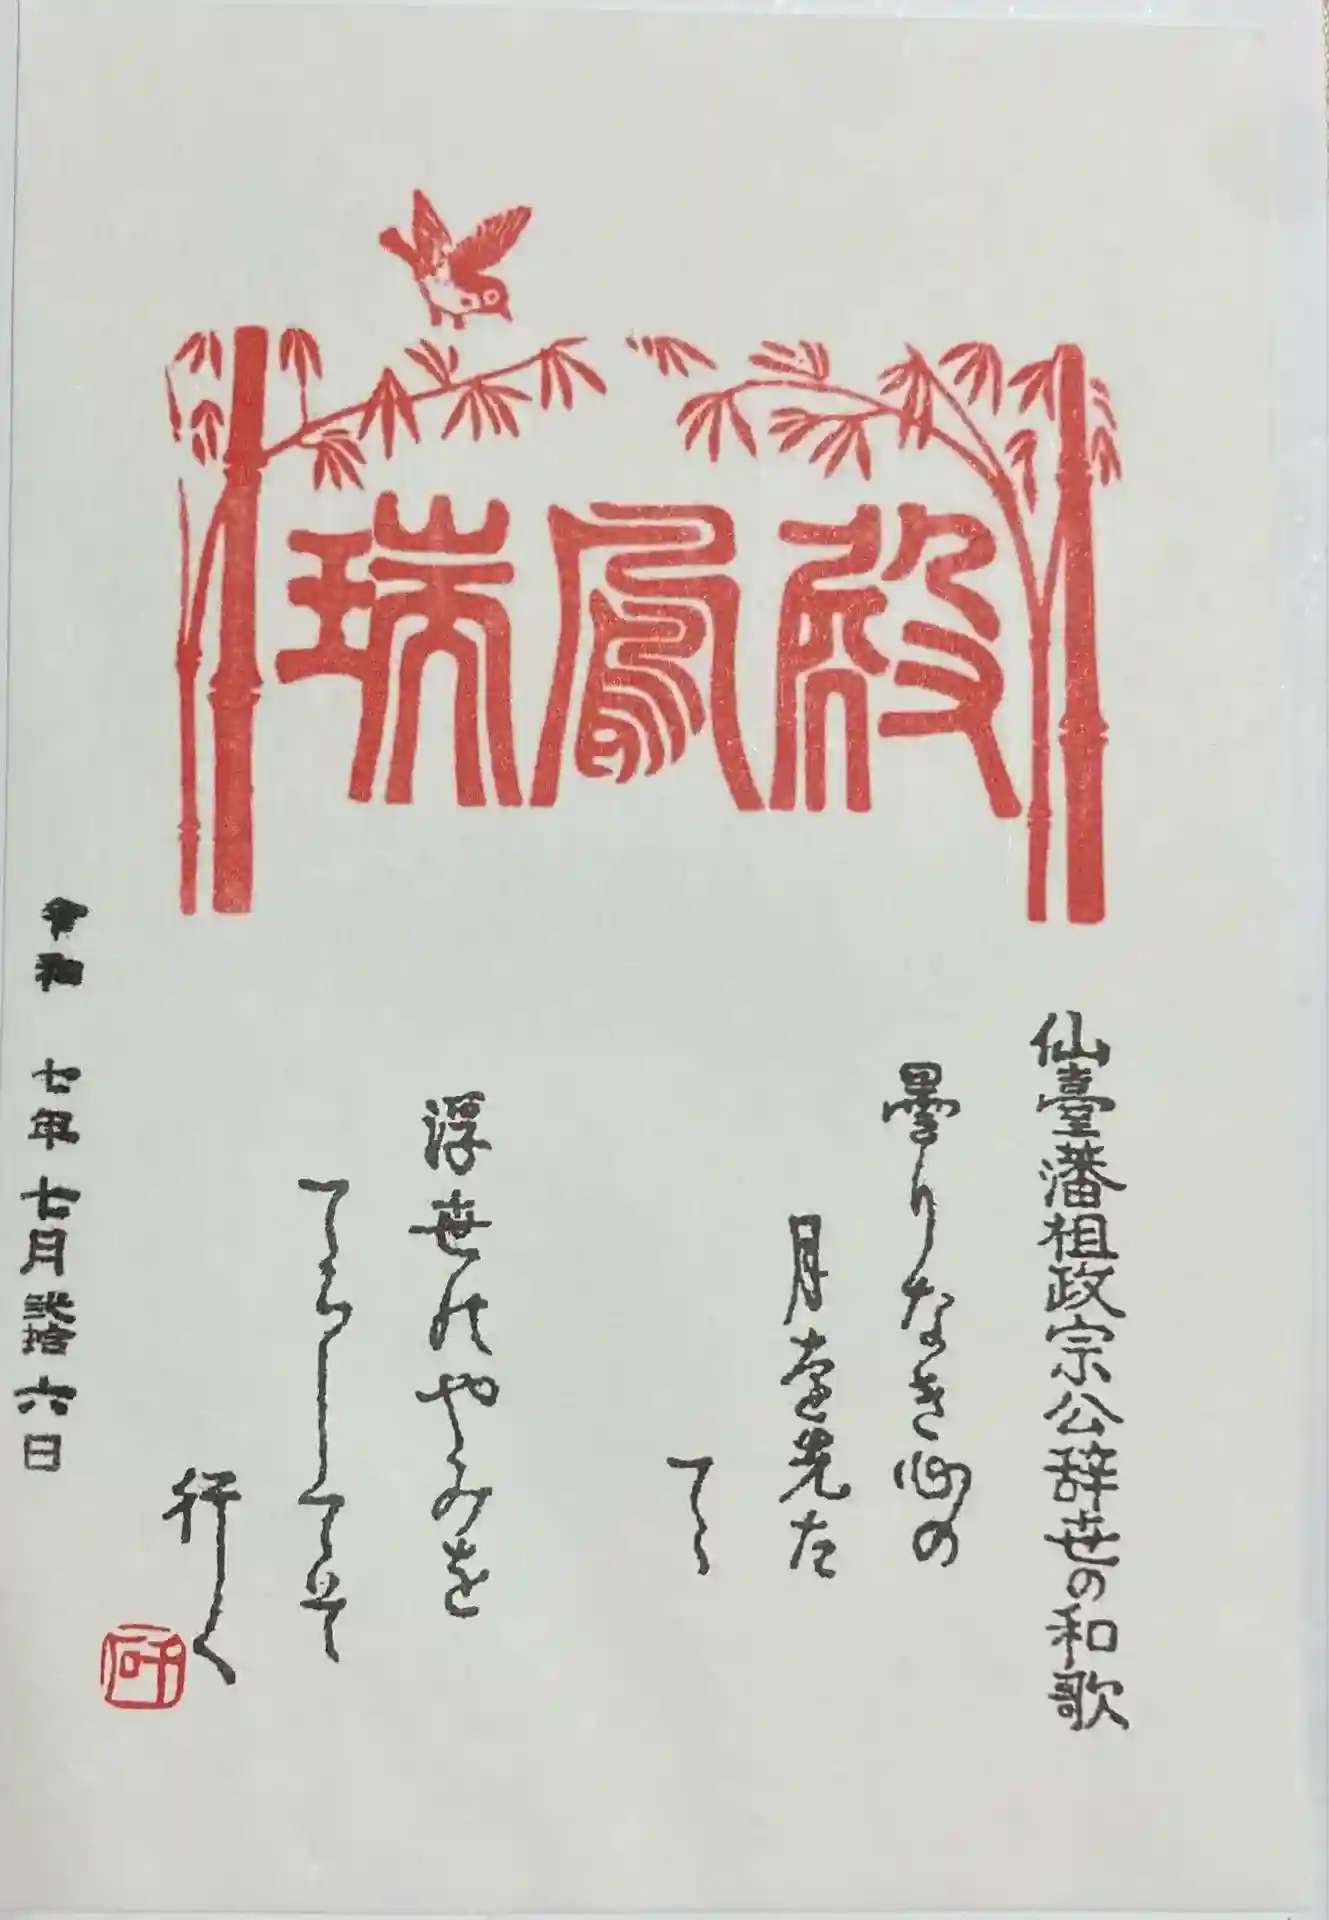 瑞鳳殿
仙臺藩祖政宗公辞世の和歌
曇りなき心の
月を先た
てゝ
浮世のやみを
てらしてそ
行く
令和 七年 七月 弐拾六日